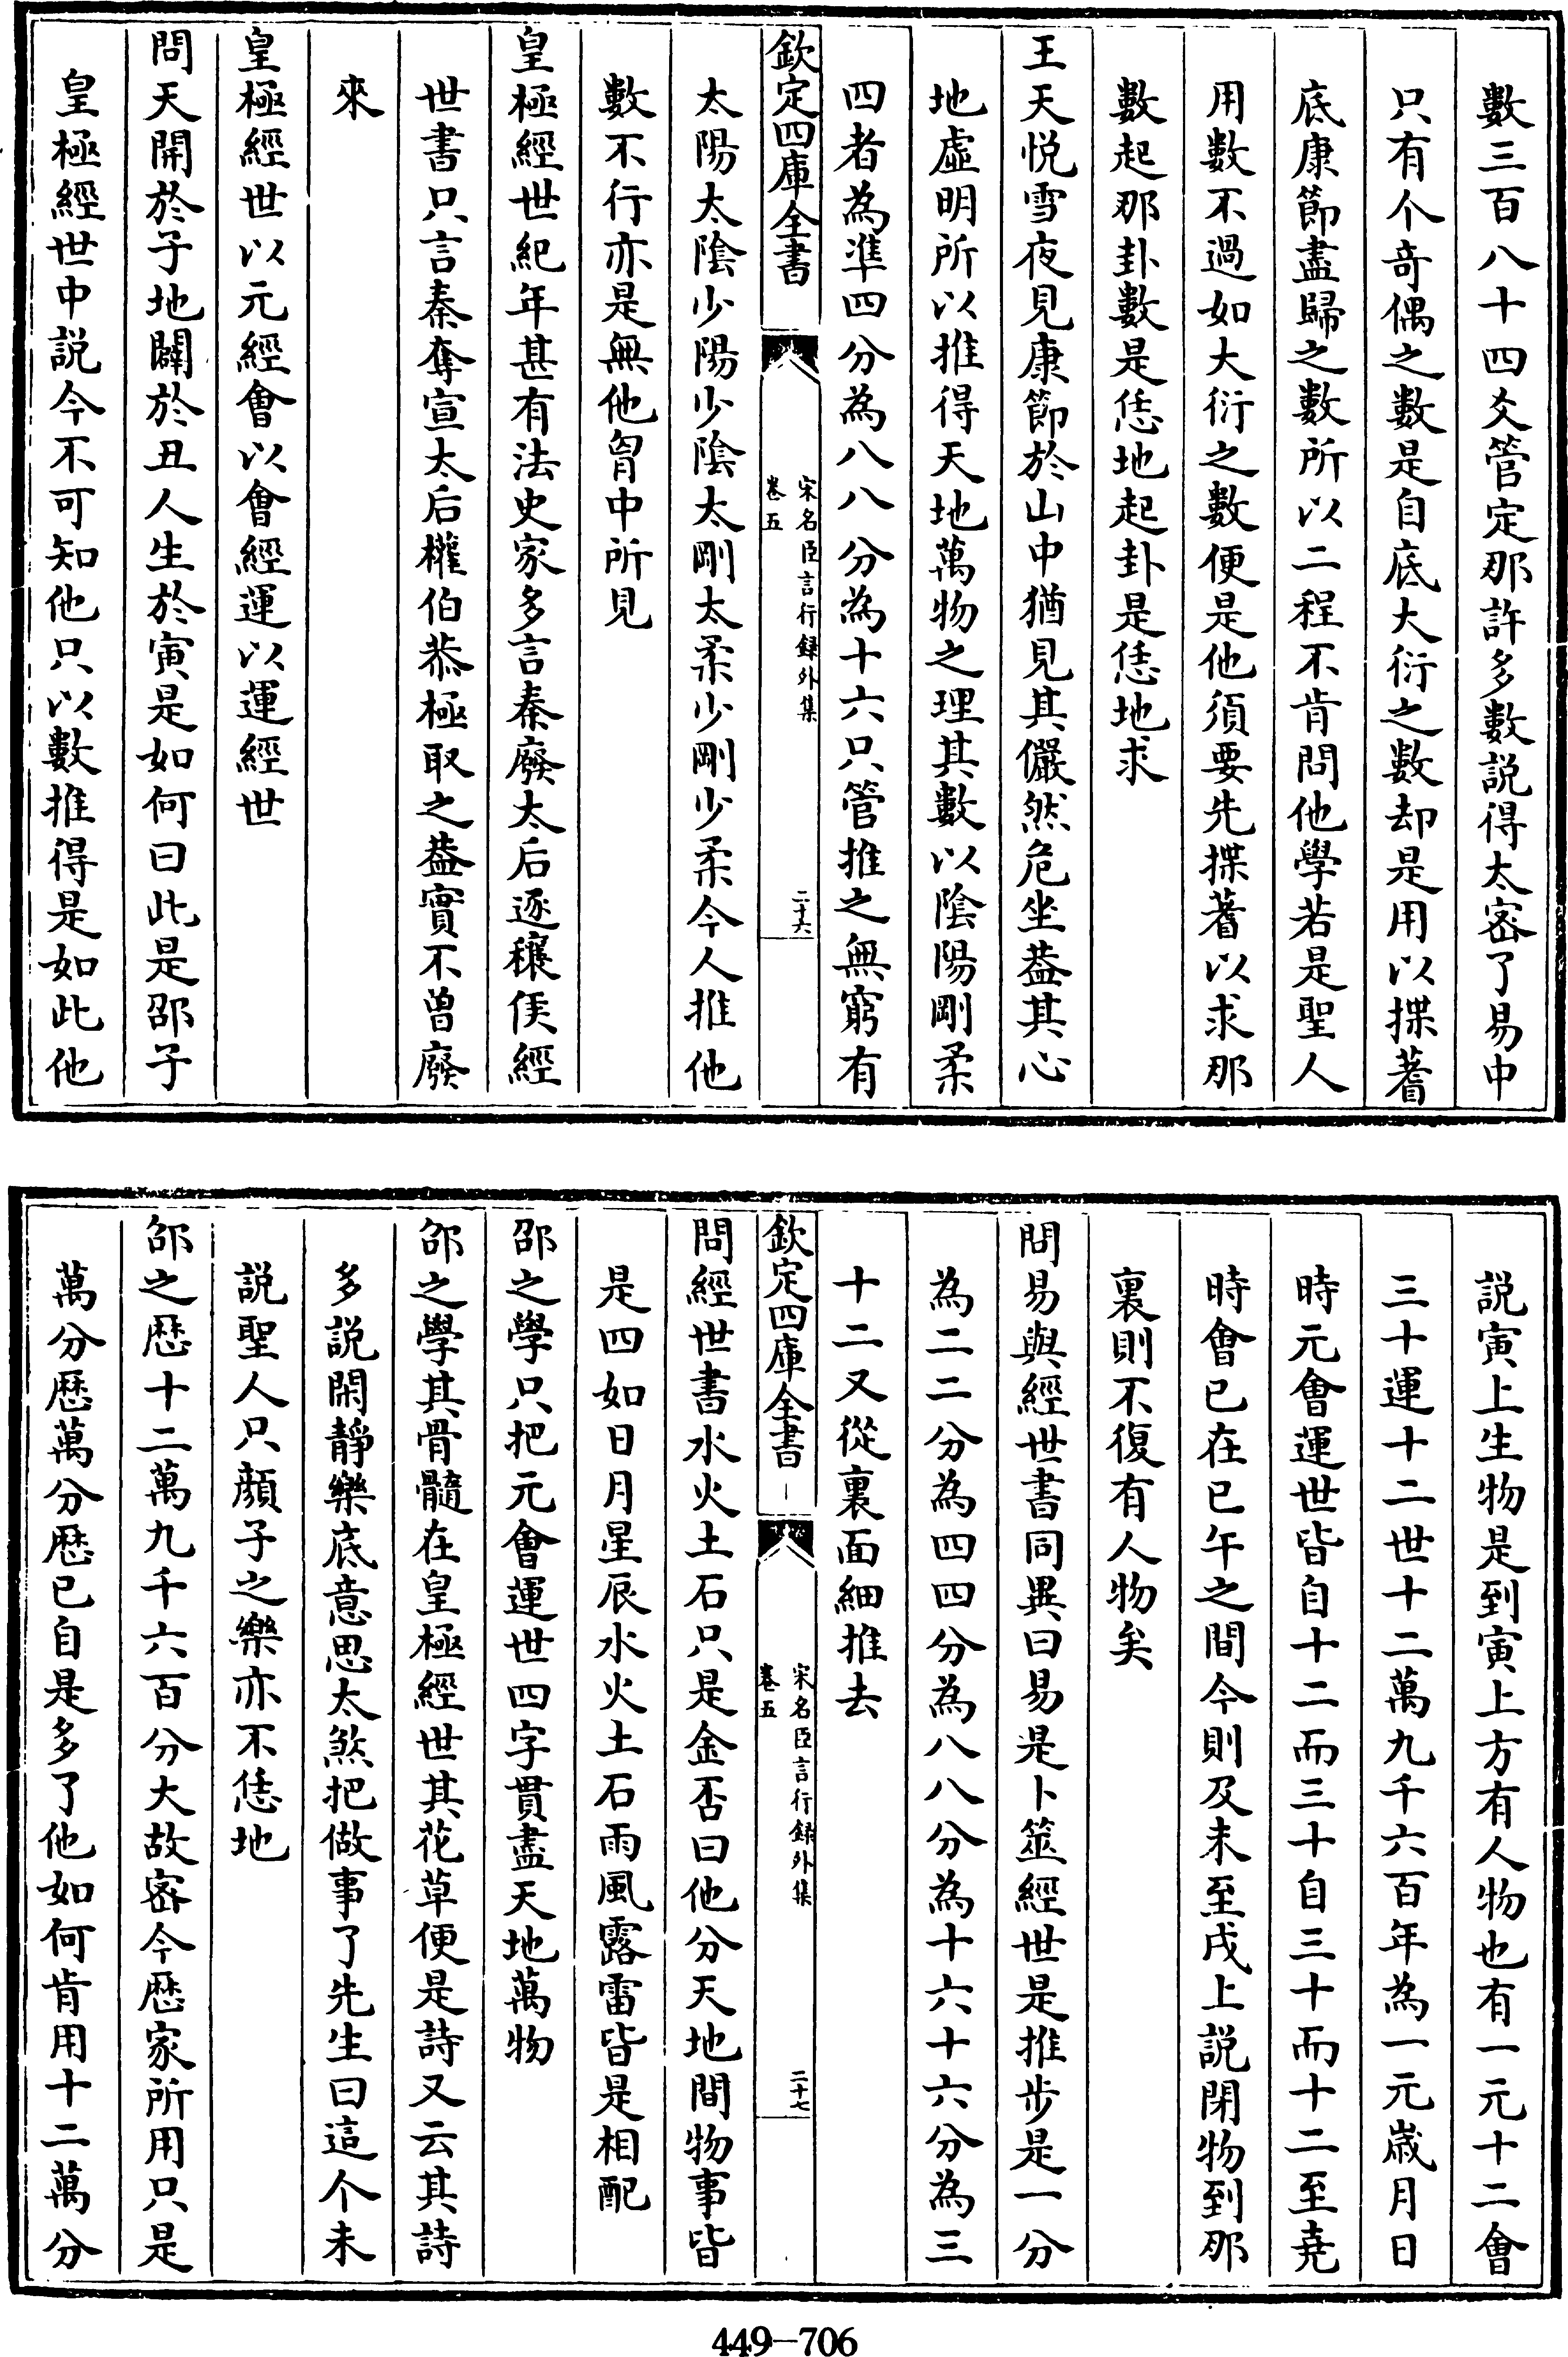 數三百八十四爻管定那許多數説得太密了易中
只有个奇偶之數是自底大衍之數却是用以揲蓍
底康節盡歸之數所以二程不肯問他學若是聖人
用數不過如大衍之數便是他須要先揲蓍以求那
數起那卦數是恁地起卦是恁地求
王天悦雪夜見康節於山中猶見其儼然危坐葢其心
地虛明所以推得天地萬物之理其數以陰陽剛柔
四者為準四分為八八分為十六只管推之無窮有
欽定四庫全書
宋名臣言行録外集
卷五
二十六
太陽太陰少陽少陰太剛太柔少剛少柔今人推他
數不行亦是無他胷中所見
皇極經世紀年甚有法史家多言秦廢太后逐穰侯經
世書只言秦奪宣太后權伯恭極取之葢實不曾廢
來
皇極經世以元經會以會經運以運經世
問天開於子地闢於丑人生於寅是如何曰此是邵子
皇極經世中説今不可知他只以數推得是如此他
説寅上生物是到寅上方有人物也有一元十二會
三十運十二世十二萬九千六百年為一元歲月日
時元會運世皆自十二而三十自三十而十二至堯
時會已在巳午之間今則及未至戌上説閉物到那
裏則不復有人物矣
問易與經世書同異曰易是卜筮經世是推步是一分
為二二分為四四分為八八分為十六十六分為三
十二又從裏面細推去
欽定四庫全書
宋名臣言行録外集
卷五
二十七
問經世書水火土石只是金否曰他分天地間物事皆
是四如日月星辰水火土石雨風露雷皆是相配
邵之學只把元會運世四字貫盡天地萬物
邵之學其骨髓在皇極經世其花草便是詩又云其詩
多説閑靜樂底意思太煞把做事了先生曰這个未
説聖人只顔子之樂亦不恁地
邵之厯十二萬九千六百分大故密今厯家所用只是
萬分厯萬分厯已自是多了他如何肯用十二萬分
449-706